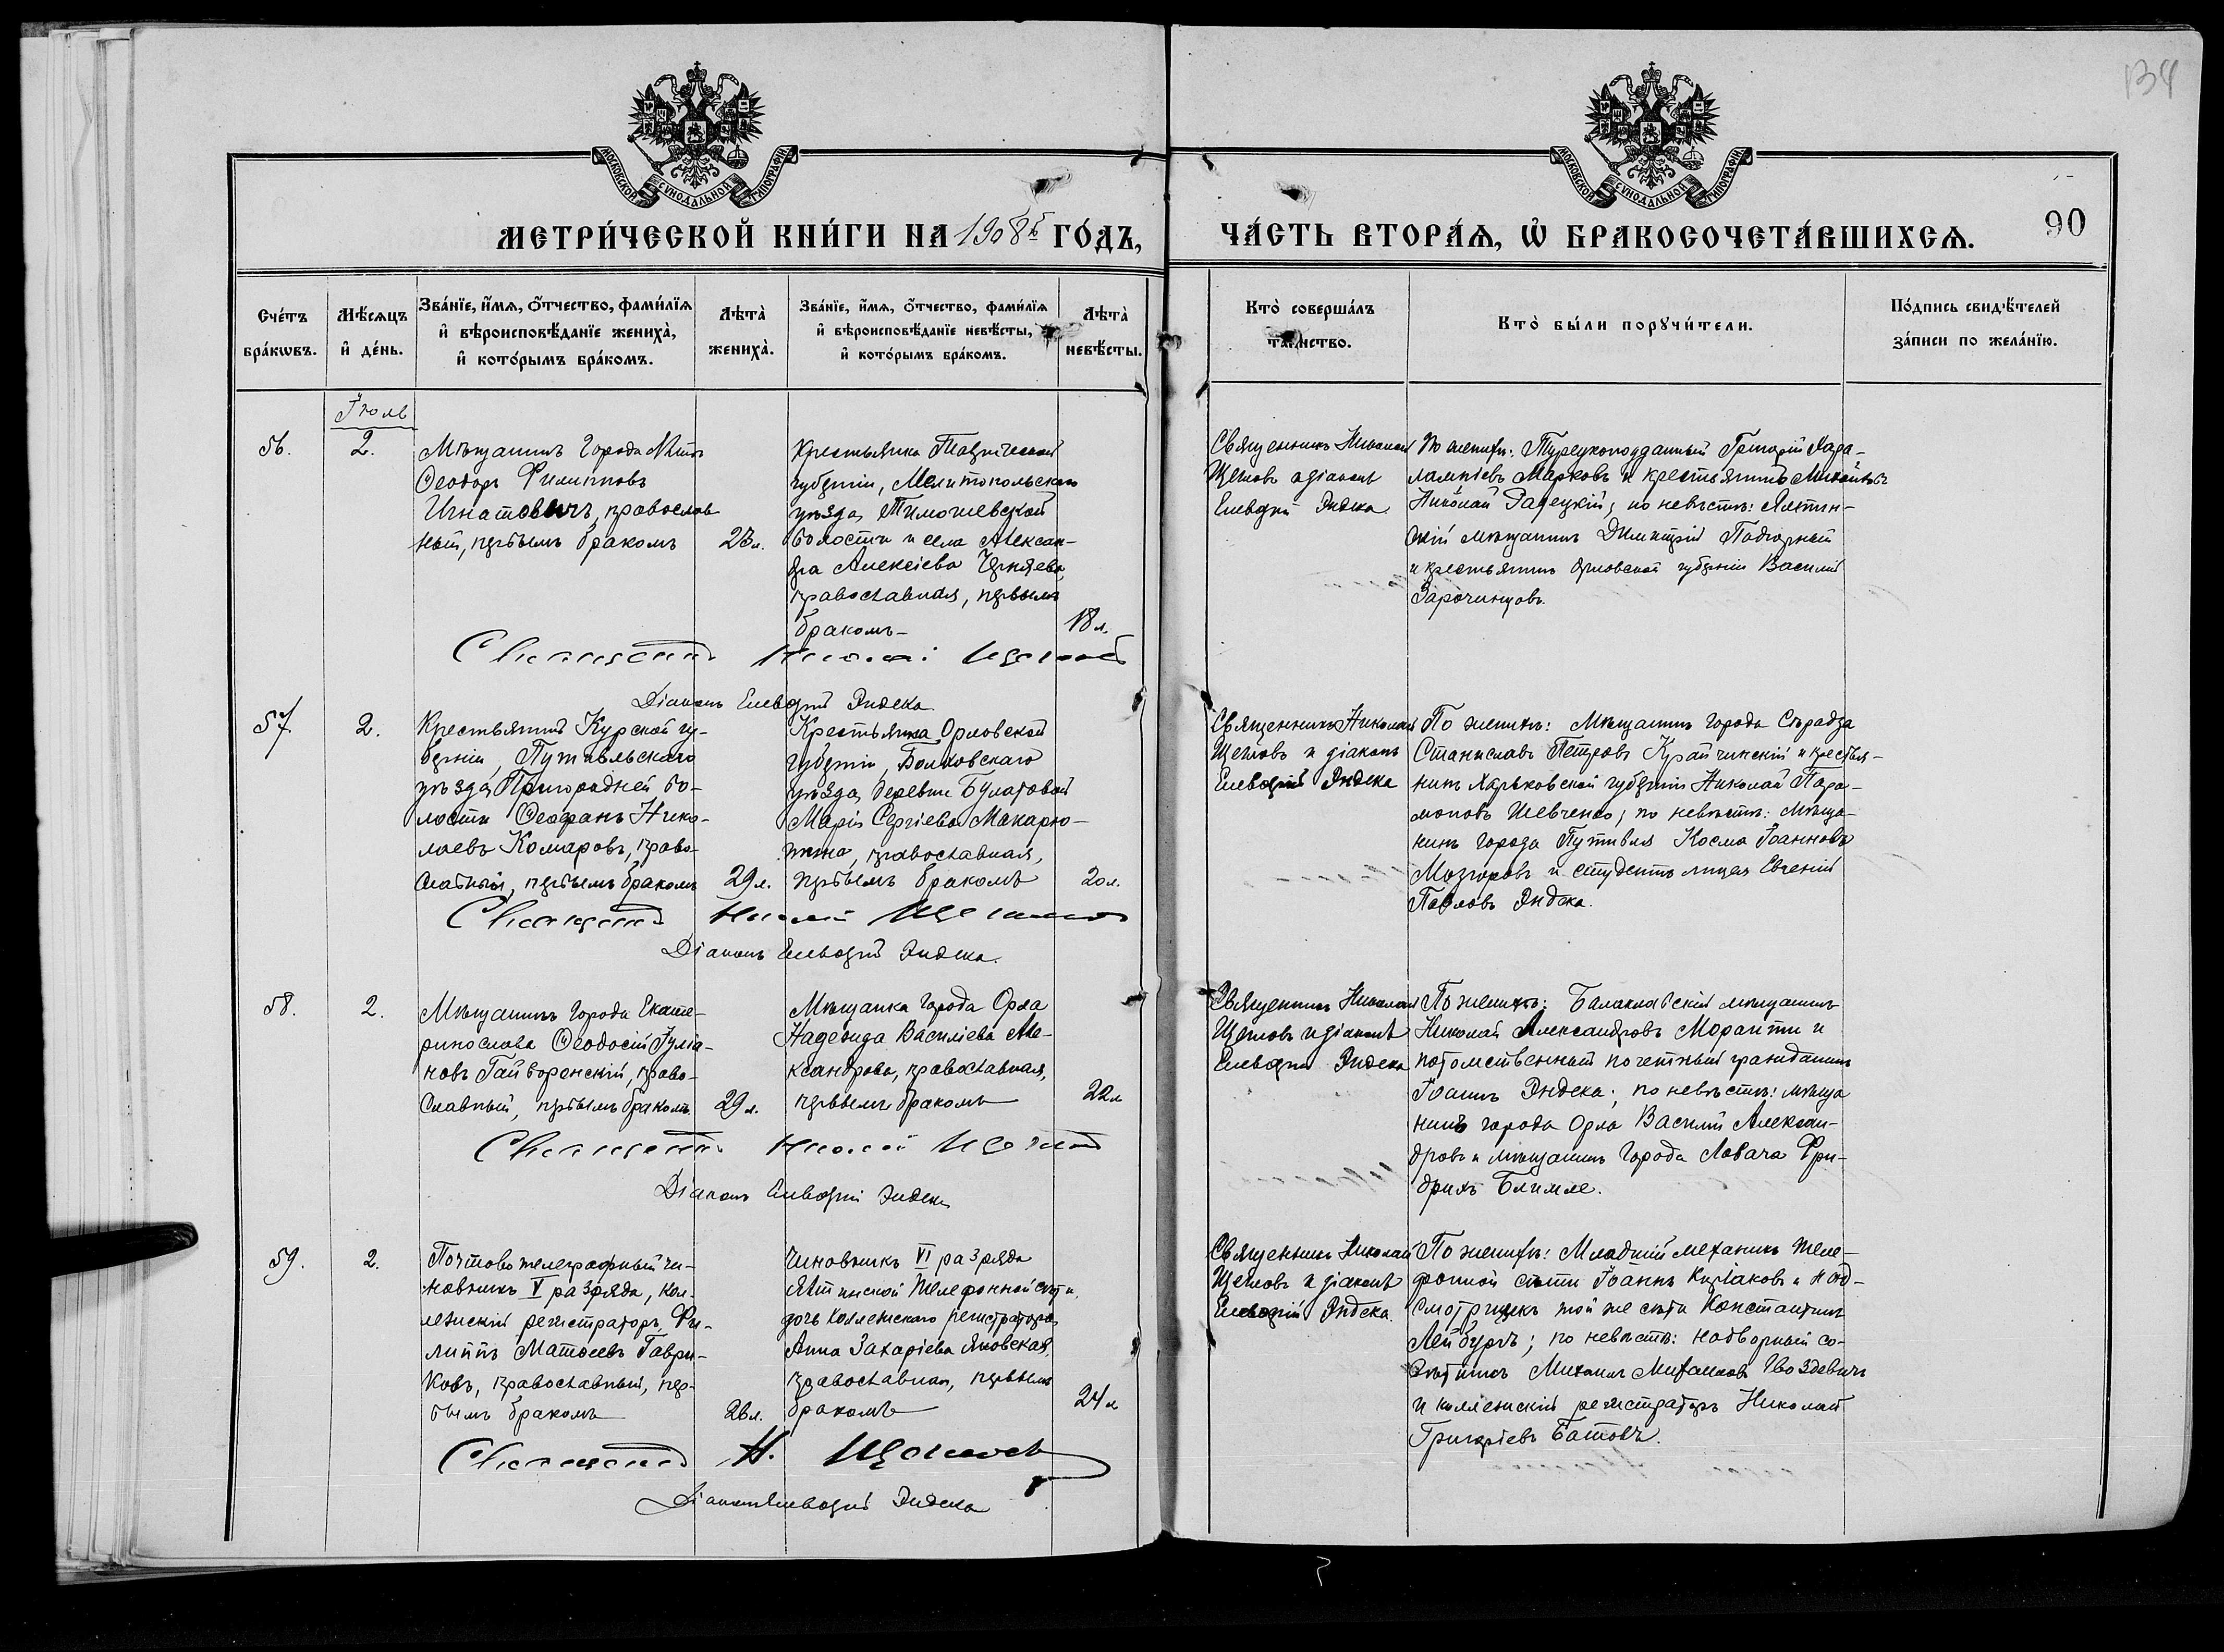 134
МОСКОВСКОЙ СѴНОДАЛЬНОЙ ТИПОГРАФІИ
МОСКОВСКОЙ СѴНОДАЛЬНОЙ ТИПОГРАФІИ
МЕТРИ́ЧЕСКОЙ КНИ́ГИ НА 1908й ГО́ДЪ,
ЧА́СТЬ ВТОРА́Ѧ, Ѡ҆ БРАКОСОЧЕТА́ВШИХСѦ.
90
Сче́тъ бра́кѡвъ.
Мѣ́сѧцъ и҆ де́нь.
Зва́нїе, и҆́мѧ, о҆́тчество, фами́лїѧ
и҆ вѣроисповѣ́данїе жениха̀,
и҆ кото́рымъ бра́комъ.
Лѣта̀ жениха̀.
Зва́нїе, и҆́мѧ, о҆́тчество, фами́лїѧ
и҆ вѣроисповѣ́данїе невѣ́сты,
и҆ кото́рымъ бра́комъ.
Лѣта̀ невѣ́сты.
Кто̀ соверша́лъ
та́инство.
Кто̀ бы́ли порꙋчи́тели.
По́дпись свидѣ́телей
за́писи по жела́нїю.
Іюль
56.
2.
Мѣщанинъ города
Ѳеодоръ Филипповъ
Игнатовичъ, православ
ный, первымъ бракомъ
23 л.
Крестьянка Таврической
губерніи, Мелитопольскаго
уѣзда, Тимошевской
волости и села Алексан-
дра Алексіева Черняева,
православная, первымъ
бракомъ
18 л.
Священникъ Николай
Щегловъ и діаконъ
Елевѳерій Эндека
По женихѣ: Турецкоподданный Григорій Хара-
лампіевъ Марковъ и крестьянинъ
Николай Радецкій; по невѣстѣ: Ялтин-
скій мѣщанинъ Димитрій Подгорный
и крестьянинъ Орловской губерніи Василій
Зарочинцовъ.
Священникъ Николай Щегловъ
Діаконъ Елевѳерій Эндека
57.
2.
Крестьянинъ Курской гу-
берніи, Путивльскаго
уѣзда, Пригородней во-
лости Ѳеофанъ Нико-
лаевъ Комаровъ, право-
славный, первымъ бракомъ
29 л.
Крестьянка Орловской
губерніи, Болховскаго
уѣзда, деревни Булатовой
Марія Сергіева Макарю-
, православная,
первымъ бракомъ
20 л.
Священникъ Николай
Щегловъ и діаконъ
Елевѳерій Эндека
По женихѣ: Мѣщанинъ города Сѣрадза
Станиславъ Петровъ Крайчинскій и крестья-
нинъ Харьковской губерніи Николай Пара-
моновъ Шевченко; по невѣстѣ: мѣща-
нинъ города Путивля Косма Іоанновъ
Мозговъ и студентъ лицея Евгеній
Павловъ Эндека.
Священникъ Николай Щегловъ
Діаконъ Елевѳерій Эндека.
58.
2.
Мѣщанинъ города Екате-
ринослава Ѳеодосій Іуліа-
новъ Гайворонскій, право-
славный, первымъ бракомъ
29 л.
Мѣщанка города Орла
Надежда Василіева Але-
ксандрова, православная,
первымъ бракомъ
22 л
Священникъ Николай
Щегловъ и діаконъ
Елевѳерій Эндека
По женихѣ: Балаклавскій мѣщанинъ
Николай Александровъ Морайти и
потомственный почетный гражданинъ
Іоаннъ Эндека; по невѣстѣ: мѣща
нинъ города Орла Василій Алексан-
дровъ и мѣщанинъ города Ловича Фри-
дрихъ Блимле.
Священникъ Николай Щегловъ
Діаконъ Елевѳерій Эндека
59.
2.
Почтово телеграфный чи-
новникъ V разряда, кол-
лежскій регистраторъ, Фи-
липпъ Матѳеевъ Гаври-
ковъ, православный, пер-
вымъ бракомъ
26 л.
Чиновникъ VI разряда
Ялтинской телефонной сѣти,
дочь коллежскаго регистратора
Анна Захаріева Яновская,
православная, первымъ
бракомъ
24 л
Священникъ Николай
Щегловъ и діаконъ
Елевѳерій Эндека.
По женихѣ: Младшій механикъ теле-
фонной сѣти Іоаннъ Киріаковъ и над-
смотрщикъ той же сѣти Константинъ
Лейбургъ; по невѣстѣ: надворный со-
вѣтникъ Михаилъ Михаиловъ Гвоздевичъ
и коллежскій регистраторъ Николай
Григоріевъ Батовъ.
Священникъ Н. Щегловъ
Діаконъ Елевѳерій Эндека